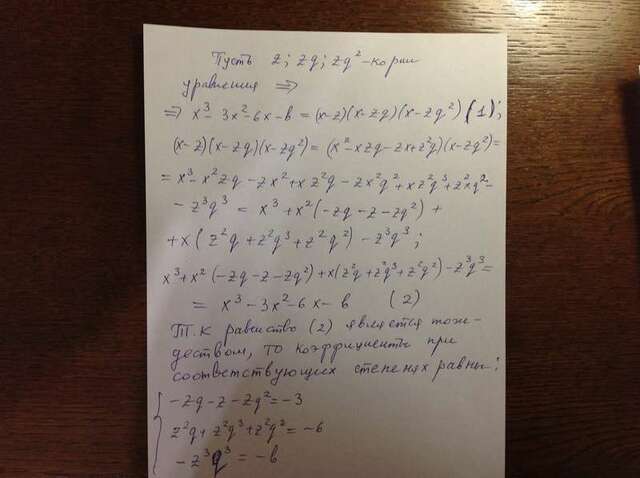 Пусть z; zq; zq² - корни
уравнения ⇒
⇒ x³ - 3x² - 6x - b = (x-z)(x-zq)(x-zq²) (1);
(x-z)(x-zq)(x-zq²) = (x² - xzq - zx + z²q)(x-zq²) =
= x³ - x²zq - zx² + xz²q - zx²q² + xz²q³ + z²xq² -
- z³q³ = x³ + x²(-zq - z - zq²) +
+ x(z²q + z²q³ + z²q²) - z³q³;
x³ + x²(-zq - z - zq²) + x(z²q + z²q³ + z²q²) - z³q³ =
= x³ - 3x² - 6x - b (2)
Т.к равенство (2) является тож-
деством, то коэффициенты при
соответствующих степенях равны:
-zq - z - zq² = -3
z²q + z²q³ + z²q² = -6
-z³q³ = -b